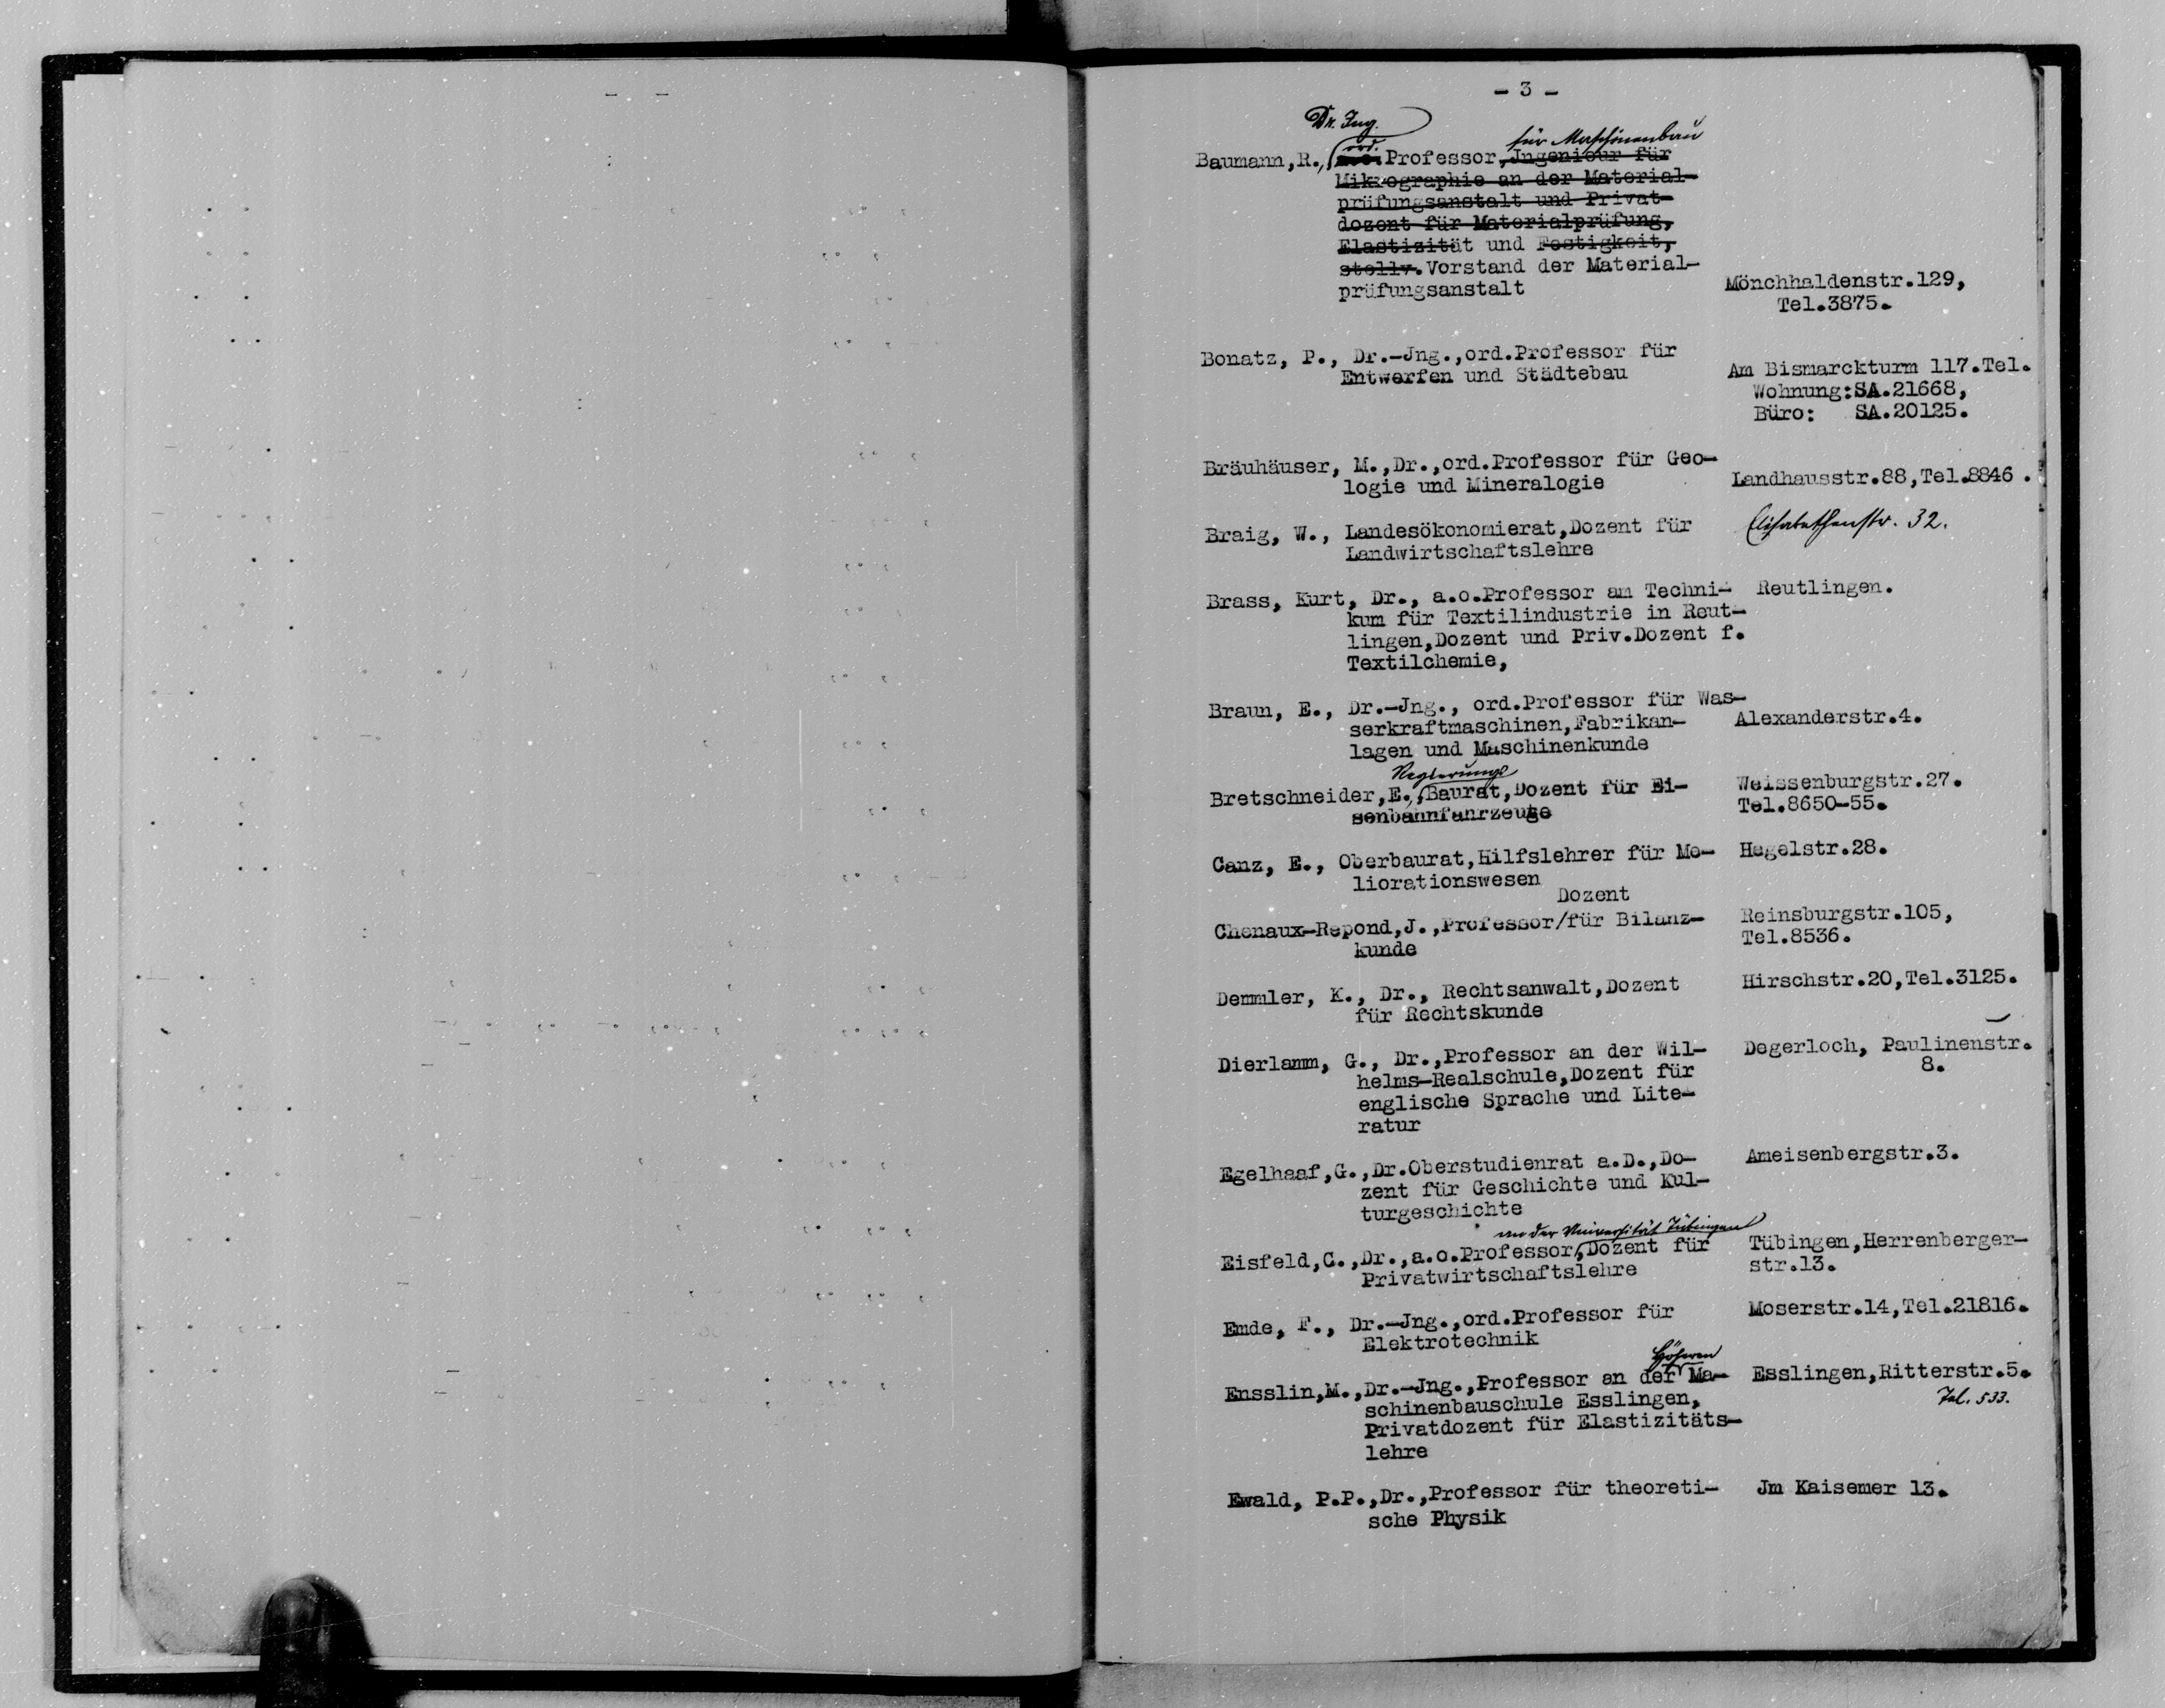 - 3 -
Dr. Ing.
ord. für Maschinenbau
Baumann,R., a.o. Professor,Jngenieur für
Mikrographie an der Material-
prüfungsanstalt und Privat-
dozent für Materialprüfung,
Elastizität und Festigkeit,
stellv.Vorstand der Material-
prüfungsanstalt
Mönchhaldenstr.129,
Tel.3875.
Bonatz, P., Dr.-Jng.,ord.Professor für
Entwerfen und Städtebau
Am Bismarckturm 117.Tel.
Wohnung:SA.21668,
Büro: SA.20125.
Bräuhäuser, M.,Dr.,ord.Professor für Geo-
logie und Mineralogie
Landhausstr.88,Tel.8846 .
Braig, W., Landesökonomierat,Dozent für
Landwirtschaftslehre
Elisabethenstr. 32.
Brass, Kurt, Dr., a.o.Professor am Techni- Reutlingen.
kum für Textilindustrie in Reut-
lingen,Dozent und Priv.Dozent f.
Textilchemie,
Braun, E., Dr.-Jng., ord.Professor für Was-
serkraftmaschinen,Fabrikan- Alexanderstr.4.
lagen und Maschinenkunde
Regierungs
Bretschneider,E.,Baurat,Dozent für Ei- Weissenburgstr.27.
senbahnfahrzeuge Tel.8650-55.
Canz, E., Oberbaurat,Hilfslehrer für Me- Hegelstr.28.
liorationswesen
Dozent
Chenaux-Repond,J.,Professor/für Bilanz- Reinsburgstr.105,
kunde Tel.8536.
Demmler, K., Dr., Rechtsanwalt,Dozent Hirschstr.20,Tel.3125.
für Rechtskunde
Dierlamm, G., Dr.,Professor an der Wil- Degerloch, Paulinenstr.
helms-Realschule,Dozent für 8.
englische Sprache und Lite-
ratur
Egelhaaf,G.,Dr.Oberstudienrat a.D.,Do- Ameisenbergstr.3.
zent für Geschichte und Kul-
turgeschichte
an der Universität Tübingen
Eisfeld,C.,Dr.,a.o.Professor,Dozent für Tübingen,Herrenberger-
Privatwirtschaftslehre str.13.
Emde, F., Dr.-Jng.,ord.Professor für Moserstr.14,Tel.21816.
Elektrotechnik
Höheren
Ensslin,M.,Dr.-Jng.,Professor an der Ma- Esslingen,Ritterstr.5.
schinenbauschule Esslingen, Tel. 533.
Privatdozent für Elastizitäts-
lehre
Ewald, P.P.,Dr.,Professor für theoreti- Jm Kaisemer 13.
sche Physik